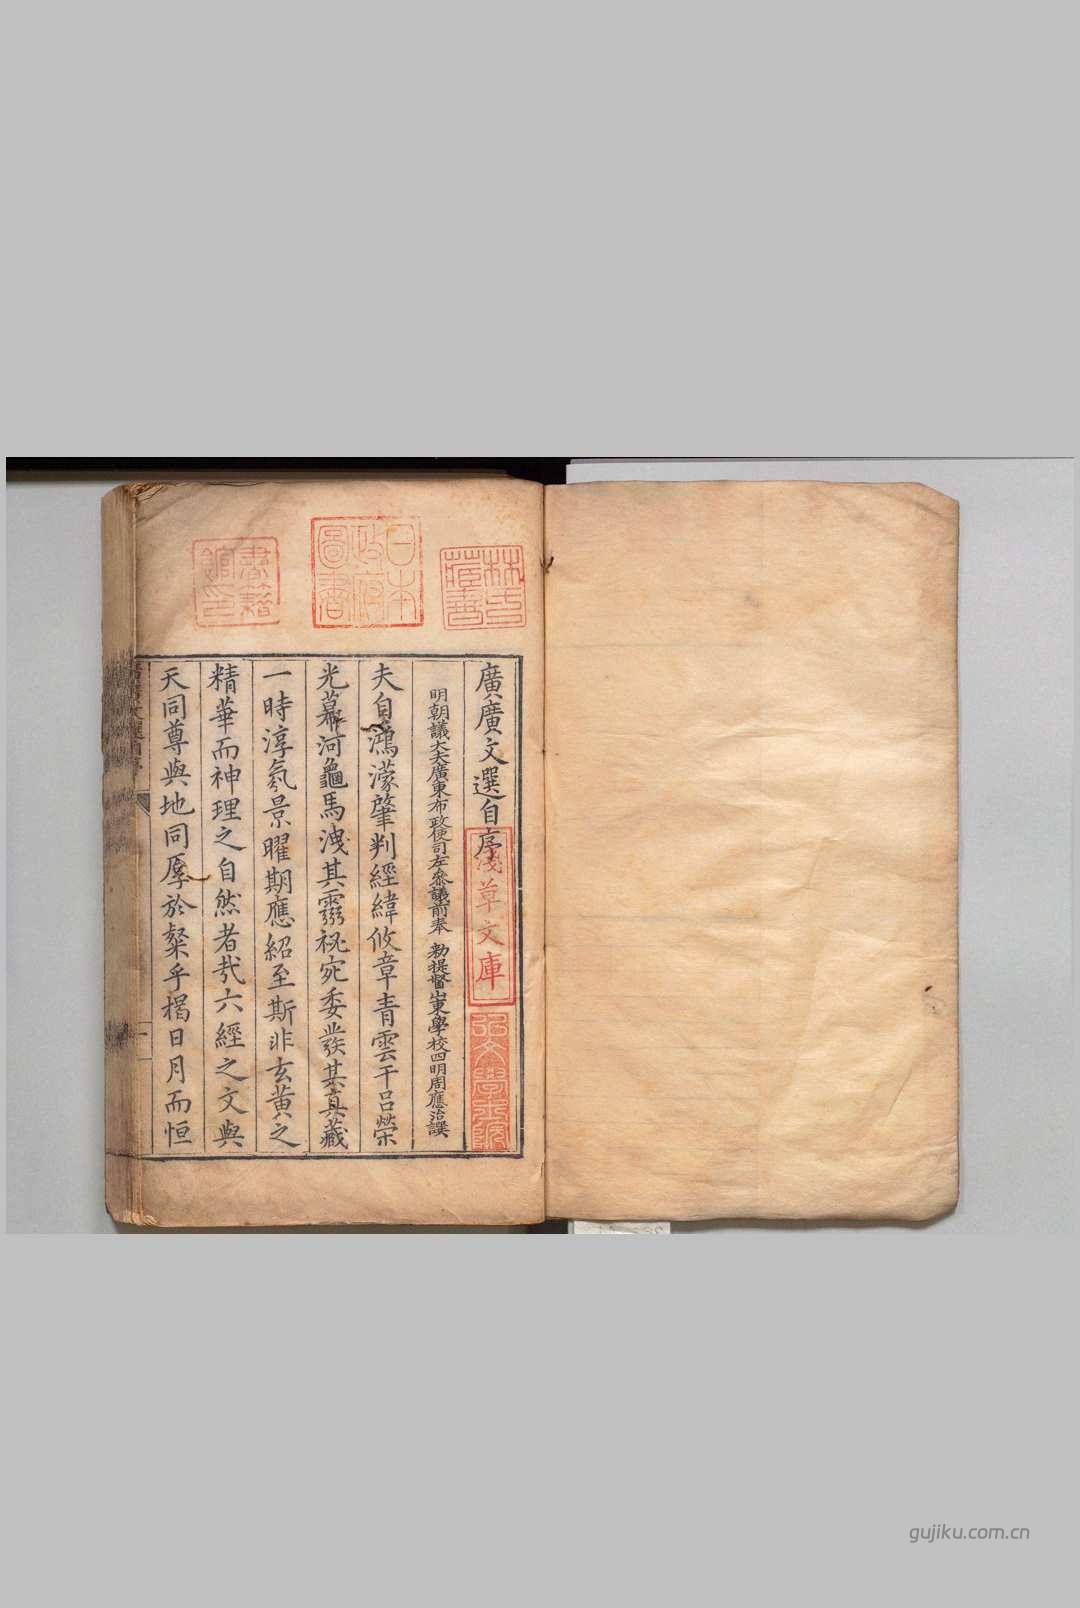 廣廣文選自序
明朝議大夫廣東布政使司左叅議前奉　勑提督山東學校四明周應治譔
夫自鴻濛肇判經緯攸章青雲干呂榮
光冪河龜馬洩其靈祕宛委發其真藏
一時淳氛景曜期應紹至斯非玄黃之
精華而神理之自然者哉六經之文與
天同尊與地同厚於粲乎揭日月而恒
林氏藏書
日本政府圖書
書籍館印
淺草文庫
弘文學士院
gujiku.com.cn